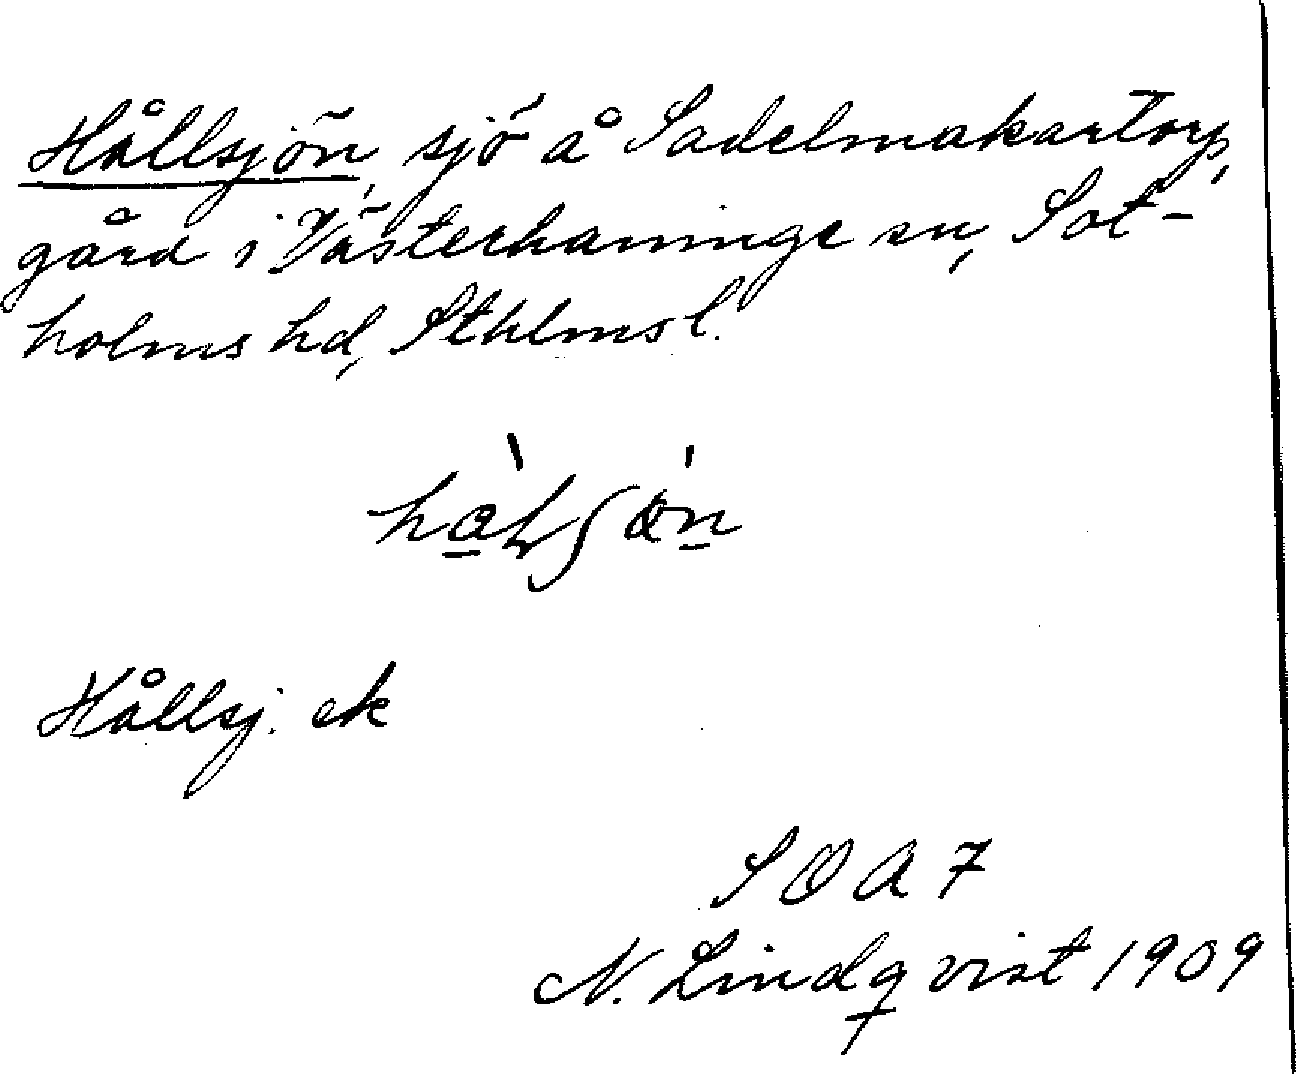 Hållsjön, sjö å Sadelmakartorp,
gård i Västerhaninge sn, Sot-
holms hd, Sthlms l.
Hållsj. ek
SOA 7
N. Lindqvist 1909